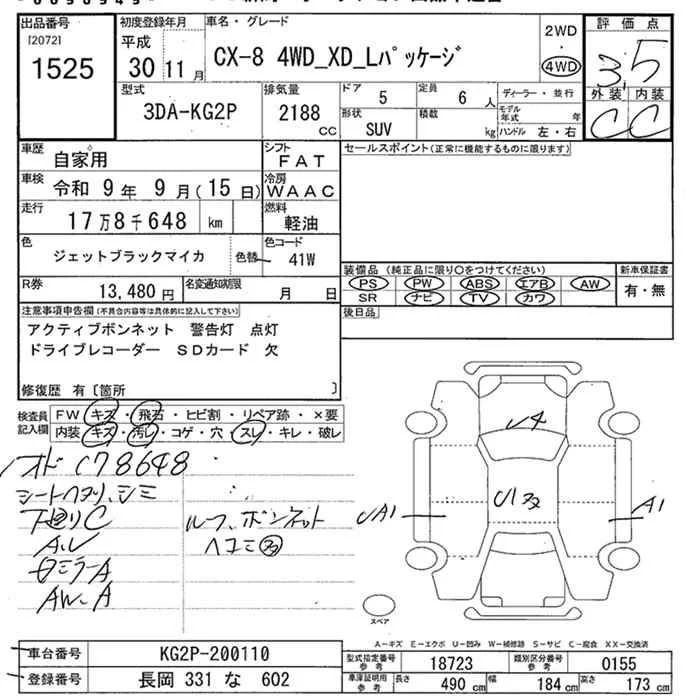 出品番号
[2072]
1525
初度登録年月
平成
30 11 月
車名・グレード
CX-8 4WD_XD_Lパッケージ
2WD
・
4WD
評価点
3,5
外装 内装
C C
型式
3DA-KG2P
排気量
2188 cc
ドア 5
定員 6 人
形状 SUV
積載 kg
ディーラー・並行
モデル年式 年
ハンドル 左・右
車歴 自家用
シフト FAT
セールスポイント(正常に機能するものに限ります)
車検 令和 9 年 9 月(15 日)
冷房 WAAC
走行 17万8千648 km
燃料 軽油
色 ジェットブラックマイカ
色替
色コード 41W
装備品 (純正品に限り○をつけてください)
新車保証書
PS PW ABS エアB AW
SR ナビ TV カワ
有・無
R券 13,480円
名変通知期限 月 日
後日品
注意事項申告欄(不具合内容等は具体的に記入して下さい)
アクティブボンネット 警告灯 点灯
ドライブレコーダー SDカード 欠
修復歴 有〔箇所 〕
検査員記入欄
FW キズ・飛石・ヒビ割・リペア跡・×要
内装 キズ・汚レ・コゲ・穴・スレ・キレ・破レ
オド 178648
シートヘタリ、シミ
下廻りC
ルーフ、ボンネット
ヘコミ
AW-A
U4
U1
UA1
A1
スペア
A-キズ E-エクボ U-凹み W-補修跡 S-サビ C-腐食 XX-交換済
車台番号 KG2P-200110
登録番号 長岡 331 な 602
型式指定番号 参考 18723
類別区分番号 参考 0155
車庫証明用 参考 長さ 490 cm 幅 184 cm 高さ 173 cm